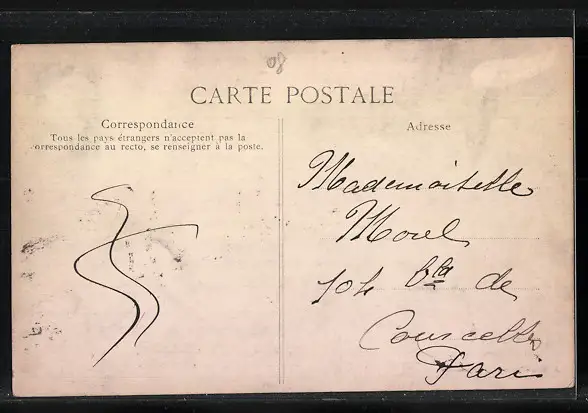 08
CARTE POSTALE
Correspondance
Tous les pays étrangers n'acceptent pas la
correspondance au recto, se renseigner à la poste.
Adresse
Mademoiselle
Morel
104 Bld de
Courcelles
Paris